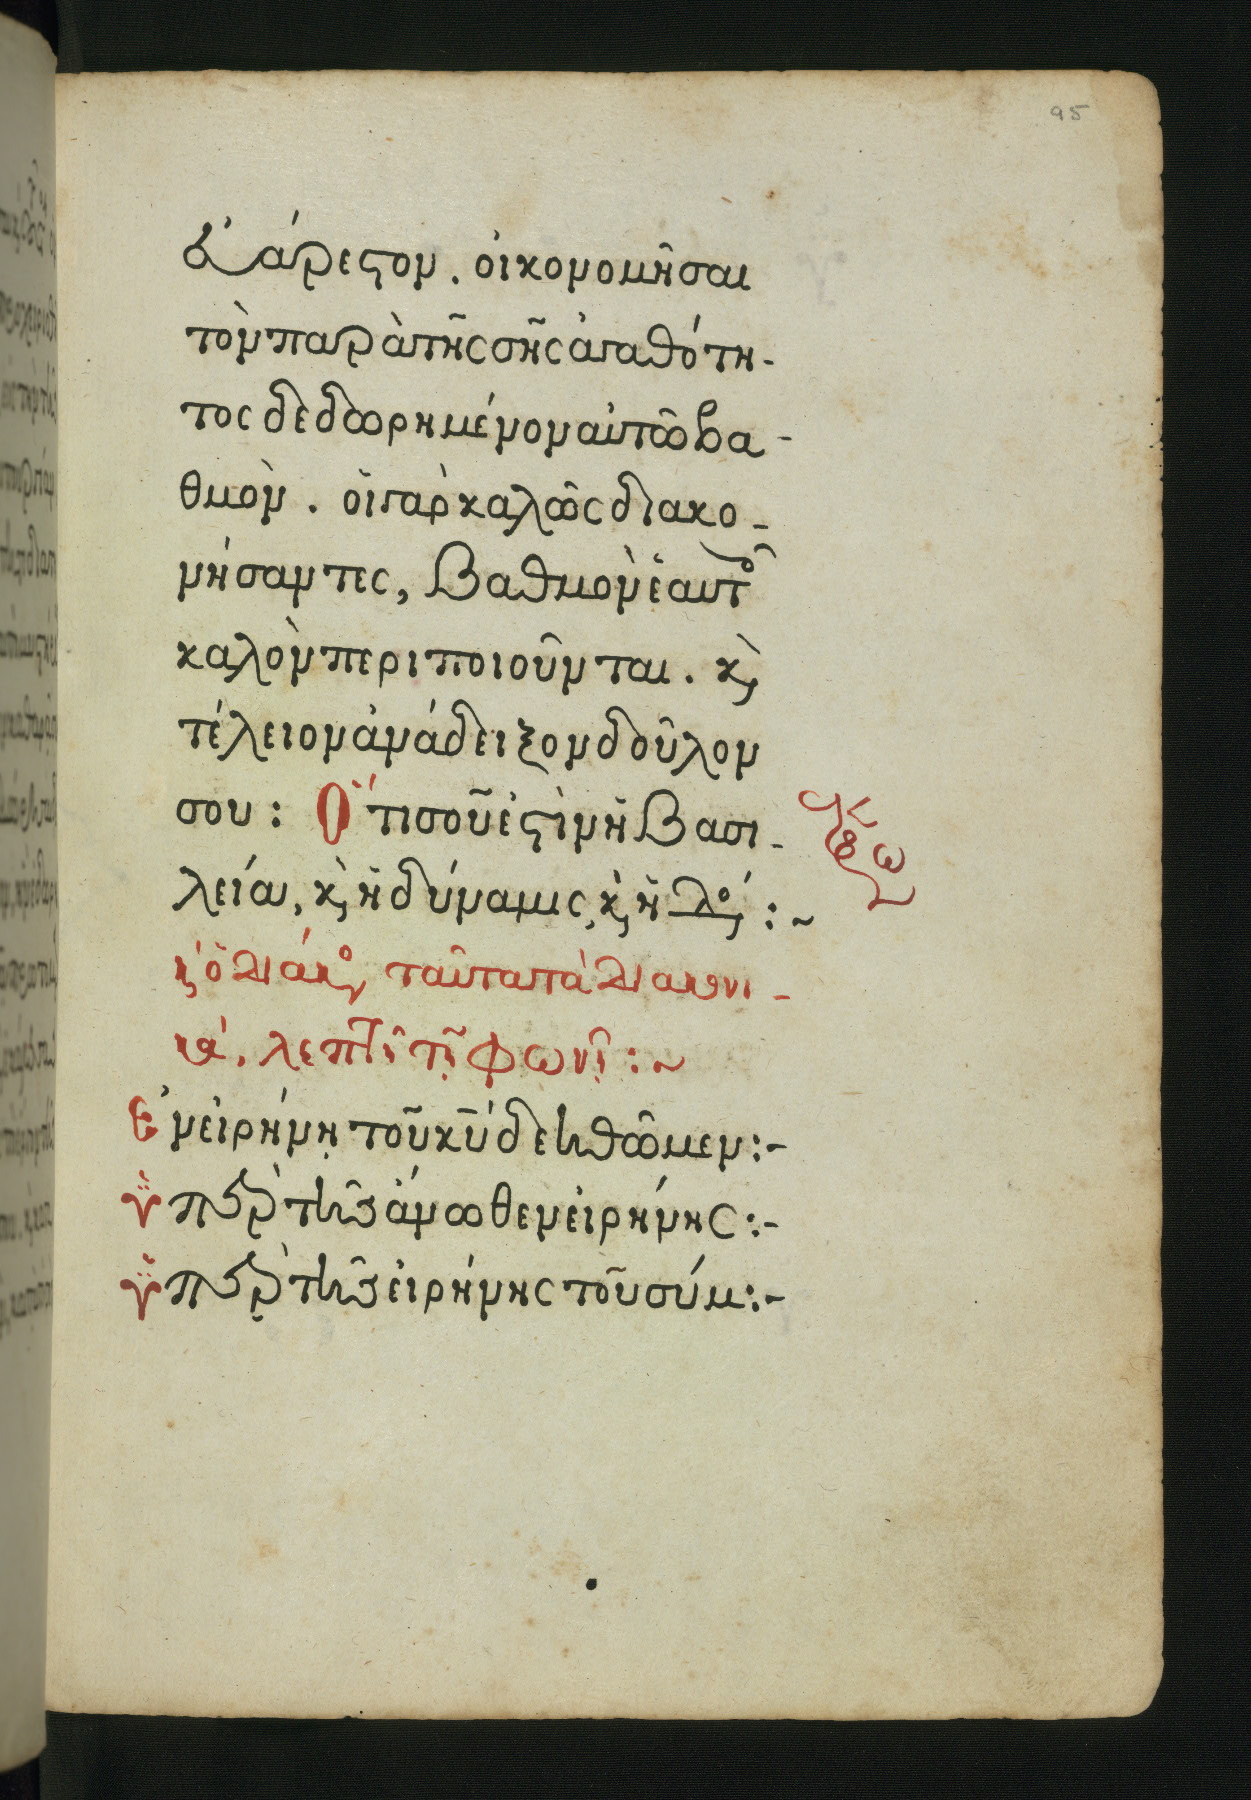 95
εὐάρεστον. οἰκονομῆσαι
τὸν παρὰ τῆς σῆς ἀγαθότη-
τος δεδωρημένον αὐτῶ βα-
θμὸν. οἱ γὰρ καλῶς διακο-
νήσαντες, βαθμὸν ἑαυτοῖ
καλὸν περιποιοῦνται. κὶ
τέλειον ἀνάδειξον δοῦλον
σου: Ὅτι σοῦ ἐστὶν ἡ βασι-
λεία, κὶ ἡ δύναμις, κὶ ἡ δό :~
κὶ ὁ διάκο ταῦτα τὰ διακονι-
κά. λεπτῆ τῆ φωνῆ :~
Ἐν εἰρήνη τοῦ κῦ δεηθῶμεν :-
Ὑπὲρ τῆς ἄνωθεν εἰρήνης :-
Ὑπὲρ τῆς εἰρήνης τοῦ σύμ :-